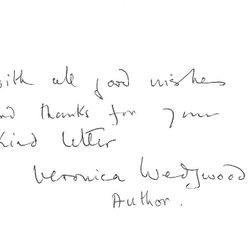 with all good wishes
and thanks for your
kind letter
Veronica Wedgwood
Author.